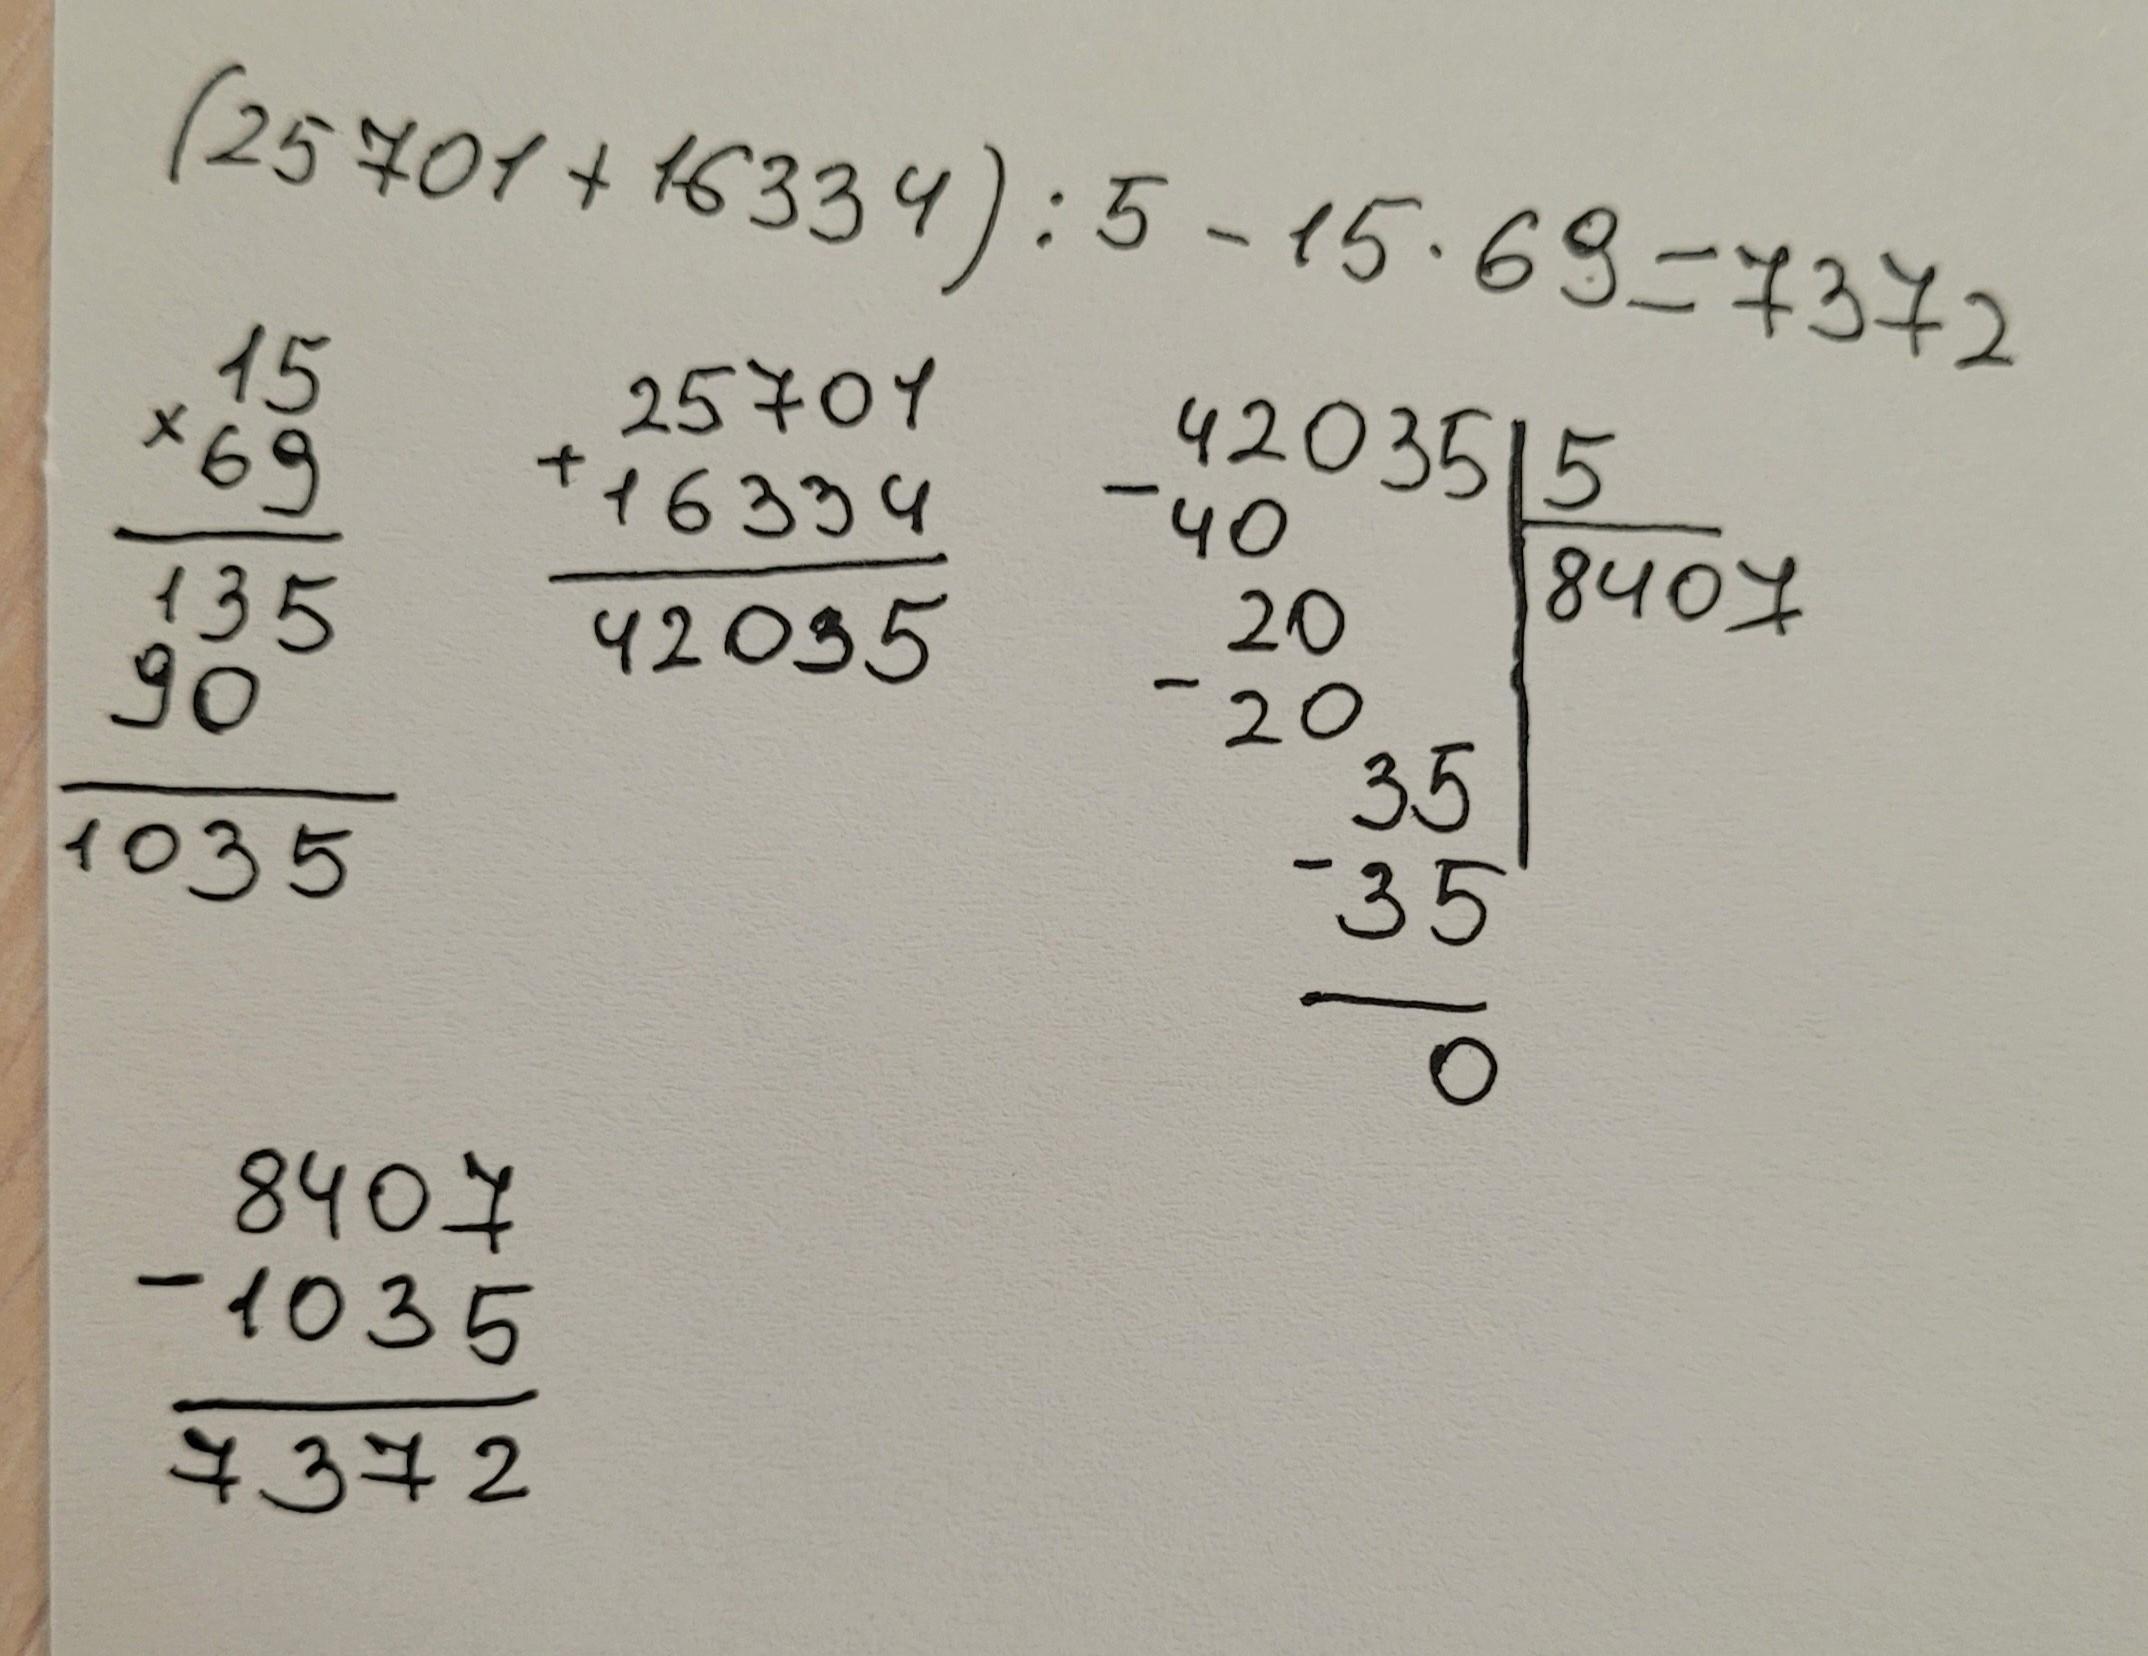 (25701+16334):5-15·69=7372
15
×69
135
90
1035
25701
+16334
42035
42035|5
-40
8407
20
-20
35
-35
0
8407
-1035
7372